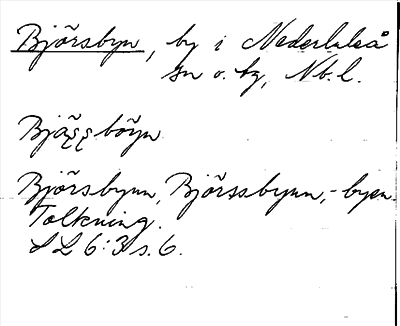 Björsbyn, by i Nederluleå
sn o. tg, Nb. l.
Bjäççböyn
Björsbynn, Björssbynn, -byen.
Tolkning.
SL 6:3 s. 6.